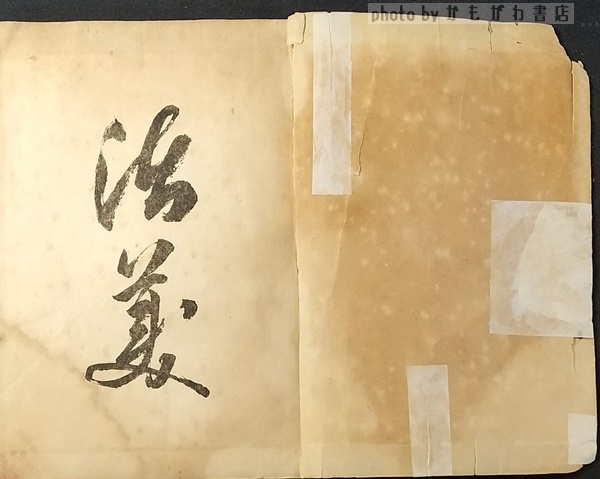 photo by かもがわ書店
活美